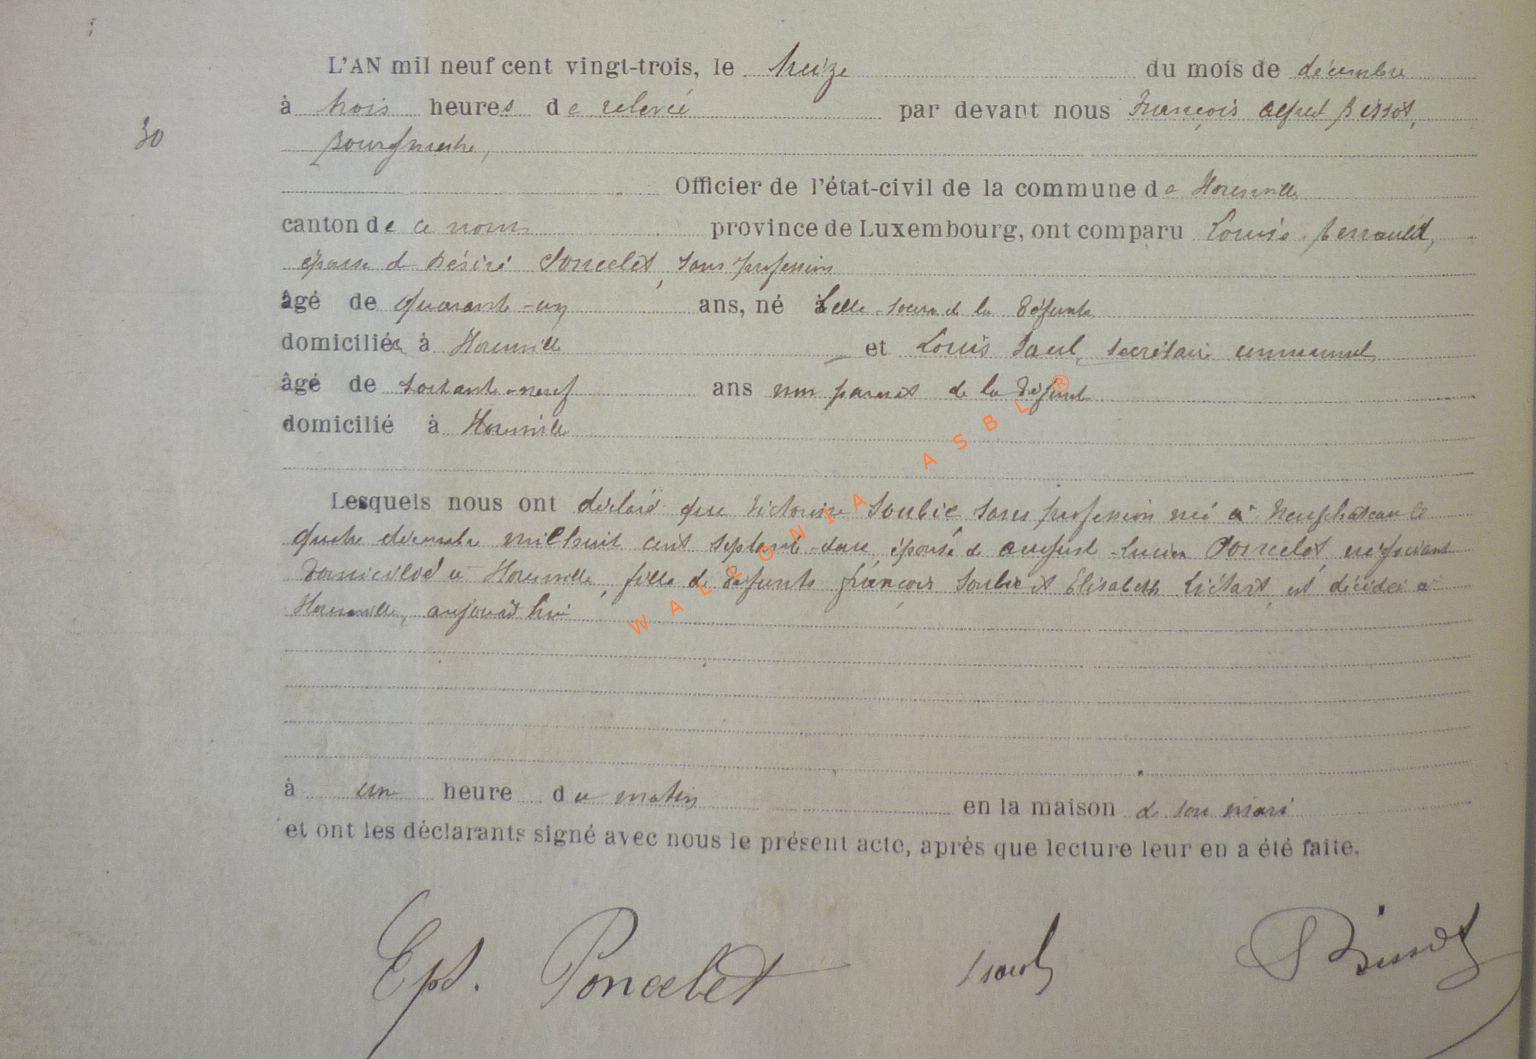 L'AN mil neuf cent vingt-trois, le treize du mois de décembre
à trois heures de relevée par devant nous François Alfred Bissot,
30
Bourgmestre,
Officier de l'état-civil de la commune de
canton de ce nom province de Luxembourg, ont comparu
épouse de Désiré Poncelet, sans profession
âgé de quarante-un ans, né belle-soeur de la défunte
domiciliée à et Louis Paul, secrétaire communal,
âgé de soixante-neuf ans non parent de la défunte
domicilié à
Lesquels nous ont déclaré que Victorine Soubie, sans profession né à Neufchâteau le
quatre décembre mil huit cent septante-deux, épouse de August-Lucien Poncelet négociant
domicilié à fille de défunts François Soubie et Elisabeth est décédée à
aujourd'hui
à une heure du matin en la maison de son mari
et ont les déclarants signé avec nous le présent acte, après que lecture leur en a été faite.
Eps. Poncelet Bissot
WALLONIA ASBL ®